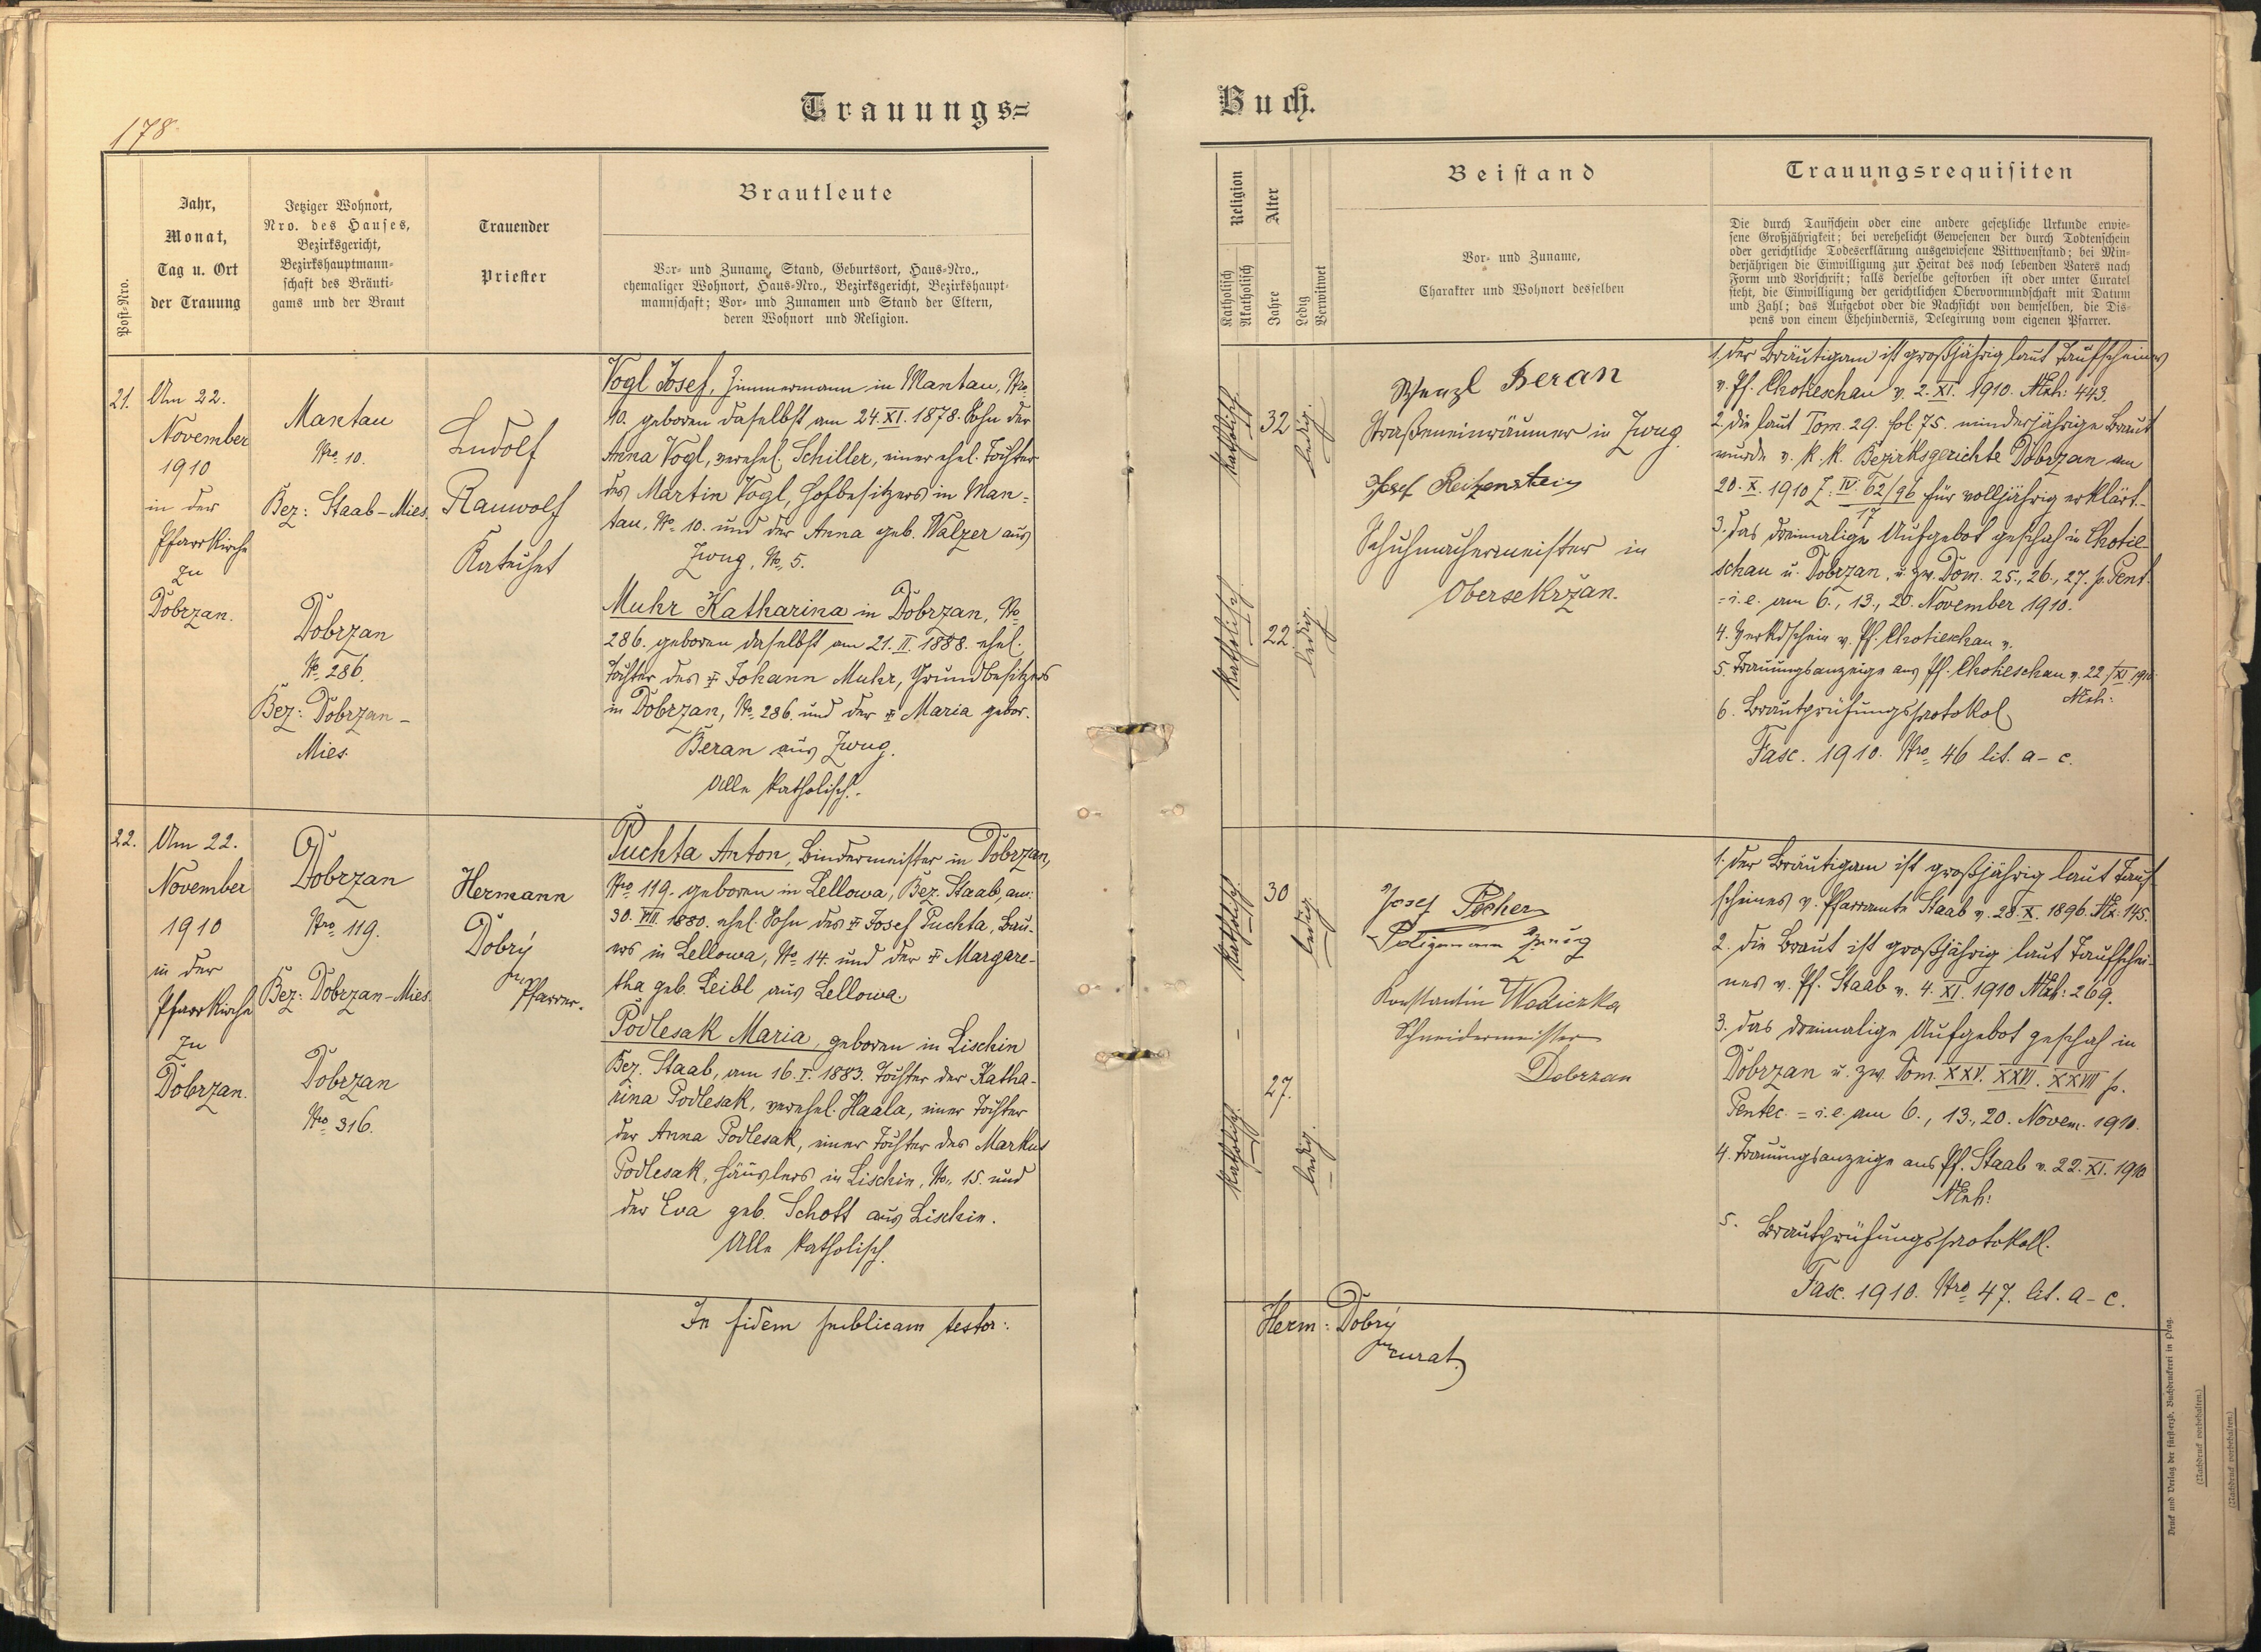 178.
Trauungs=
Post-Nro.
Jahr,
Monat,
Tag u. Ort
der Trauung
Jetziger Wohnort,
Nro. des Hauses,
Bezirksgericht,
Bezirkshauptmann=
schaft des Bräuti=
gams und der Braut
Trauender
Priester
Brautleute
Vor- und Zuname, Stand, Geburtsort, Haus-Nro.,
ehemaliger Wohnort, Haus-Nro., Bezirksgericht, Bezirkshaupt=
mannschaft; Vor- und Zunamen und Stand der Eltern,
deren Wohnort und Religion.
21.
Am 22.
November
1910
in der
Pfarrkirche
zu
Dobrzan.
Mantau
Nro. 10.
Bez: Staab-Mies.
Dobrzan
No. 286.
Bez: Dobrzan-
Mies.
Ludolf
Rauwolf
Katechet
Vogl Josef, Zimmermann in Mantau, Nro.
10. geboren daselbst am 24. XI. 1878. Sohn der
Anna Vogl, verehel. Schiller, einer ehel. Tochter
des Martin Vogl, Hofbesitzers in Man=
tau, No. 10. und der Anna geb. Walzer aus
Zwug, No. 5.
Muhr Katharina in Dobrzan, No.
286. geboren daselbst am 21. II. 1888. ehel.
Tochter des ✝ Johann Muhr, Grundbesitzers
in Dobrzan, No. 286. und der ✝ Maria gebor.
Beran aus Zwug.
Alle katholisch.
22.
Am 22.
November
1910
in der
Pfarrkirche
zu
Dobrzan.
Dobrzan
Nro. 119.
Bez: Dobrzan-Mies.
Dobrzan
Nro. 316.
Hermann
Dobrý
Pfarrer.
Puchta Anton, Bindermeister in Dobrzan,
Nro. 119. geboren in Lellowa, Bez. Staab, am
30. VIII. 1880. ehel. Sohn des ✝ Josef Puchta, Bau-
ers in Lellowa, No. 14. und der ✝ Margare-
tha geb. Leibl aus Lellowa.
Podlesak Maria, geboren in Lischin
Bez. Staab, am 16. I. 1883. Tochter der Katha-
rina Podlesak, verehel. Haala, einer Tochter
der Anna Podlesak, einer Tochter des Markus
Podlesak, Häuslers in Lischin, No. 15. und
der Eva geb. Schott aus Lischin.
Alle katholisch.
In fidem publicam testor:
Buch.
Religion
Katholisch
Akatholisch
Alter
Jahre
Ledig
Verwitwet
Beistand
Vor- und Zuname,
Charakter und Wohnort desselben
Trauungsrequisiten
Die durch Taufschein oder eine andere gesetzliche Urkunde erwie=
sene Großjährigkeit; bei verehelicht Gewesenen der durch Todtenschein
oder gerichtliche Todeserklärung ausgewiesene Wittwenstand; bei Min=
derjährigen die Einwilligung zur Heirat des noch lebenden Vaters nach
Form und Vorschrift; falls derselbe gestorben ist oder unter Curatel
steht, die Einwilligung der gerichtlichen Obervormundschaft mit Datum
und Zahl; das Aufgebot oder die Nachsicht von demselben, die Dis=
pens von einem Ehehindernis, Delegirung vom eigenen Pfarrer.
katholisch.
32
ledig.
katholisch.
22.
ledig.
Wenzl Beran
Straßeneinräumer in Zwug.
Josef Reitzenstein
Schuhmachermeister in
Obersekržan.
1. der Bräutigam ist großjährig laut Taufscheines
v. Pf. Chotieschau v. 2. XI. 1910. NExh: 443.
2. die laut Tom. 29. fol. 75. minderjährige Braut
wurde v. k. k. Bezirksgerichte Dobrzan am
20. X. 1910 Z: IV. 62/96 für volljährig erklärt.
17
3. das dreimalige Aufgebot geschah in Chotie-
schau u. Dobrzan, u. zw. Dom. 25., 26., 27. p. Pent.
= i. e. am 6., 13., 20. November 1910.
4. Verkdschein v. Pf. Chotieschau v.
5. Trauungsanzeige aus Pf. Chotieschau v. 22/XI. 1910
NExh:
6. Brautprüfungsprotokol
Fasc. 1910. Nro. 46 lit. a-c.
katholisch.
30
ledig.
katholisch.
27.
ledig.
Josef Pecher
Konstantin Wodiczka
Schneidermeister
Dobrzan
1. der Bräutigam ist großjährig laut Tauf-
scheines v. Pfarramte Staab v. 28. X. 1896. NEx: 145.
2. die Braut ist großjährig laut Taufschei-
nes v. Pf. Staab v. 4. XI. 1910 NExh: 269.
3. das dreimalige Aufgebot geschah in
Dobrzan u. zw. Dom. XXV. XXVI. XXVII p.
Pentec. = i. e. am 6., 13., 20. Novem. 1910.
4. Trauungsanzeige aus Pf. Staab v. 22. XI. 1910
NExh:
5. Brautprüfungsprotokoll.
Fasc. 1910. Nro. 47. lit. a-c.
Herm: Dobrý
curat.
Druck und Verlag der fürsterzb. Buchdruckerei in Prag.
(Nachdruck vorbehalten.)
(Nachdruck vorbehalten.)